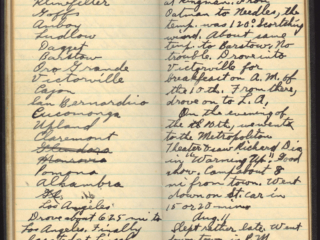 Klinefilter
Goffs
Amboy
Ludlow
Daggett
Barstow
Oro Grande
Victorville
Cajon
San Bernardino
Cucomonga
Upland
Claremont
Glendora
Monrovia
Pomona
Alhambra
Los Angeles
Drove about 625 mi to
Los Angeles. Finally
at Kingman. From
Oatman to Needles, the
temp. was 120° Scorching
wind. About same
temp. to Barstow. No
trouble. Drove into
Victorville for
breakfast on A.M. of
the 10th. From there,
drove on to L.A.
On the evening of
the 10th, went to
the Metropolitan
Theater & saw Richard Dix
in "Warming Up." Good
show. Camp about 8
mi from town. Went
down on St. car in
15 or 20 mins
Aug. 11
Slept rather late. Went